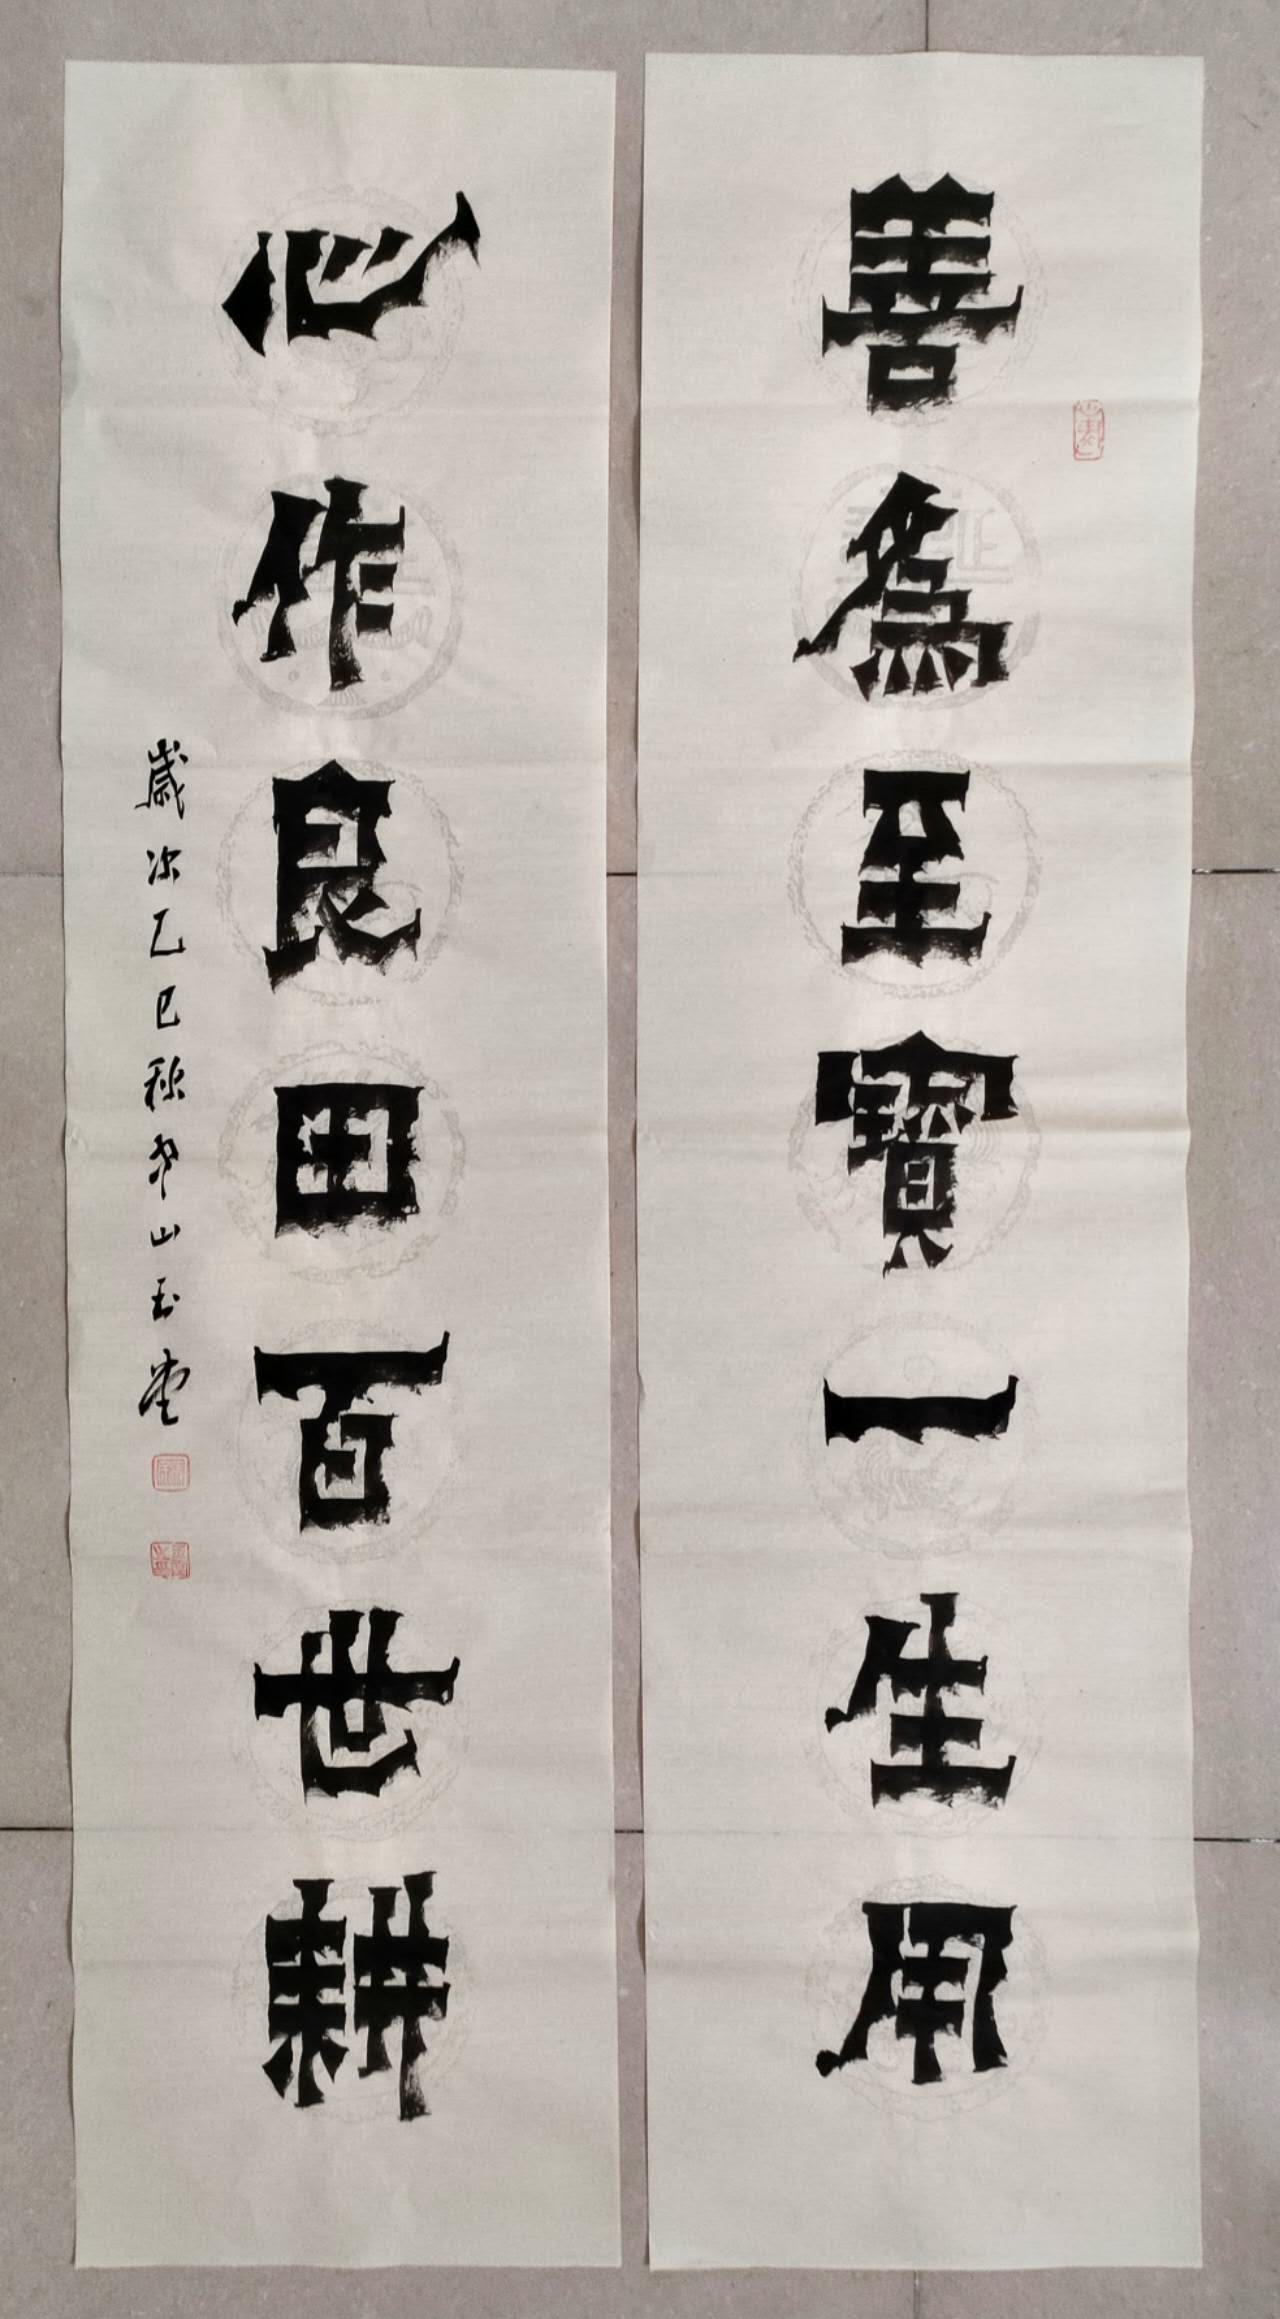 善為至寶一生用
心作良田百世耕
歲次乙巳秋堯山玉堂